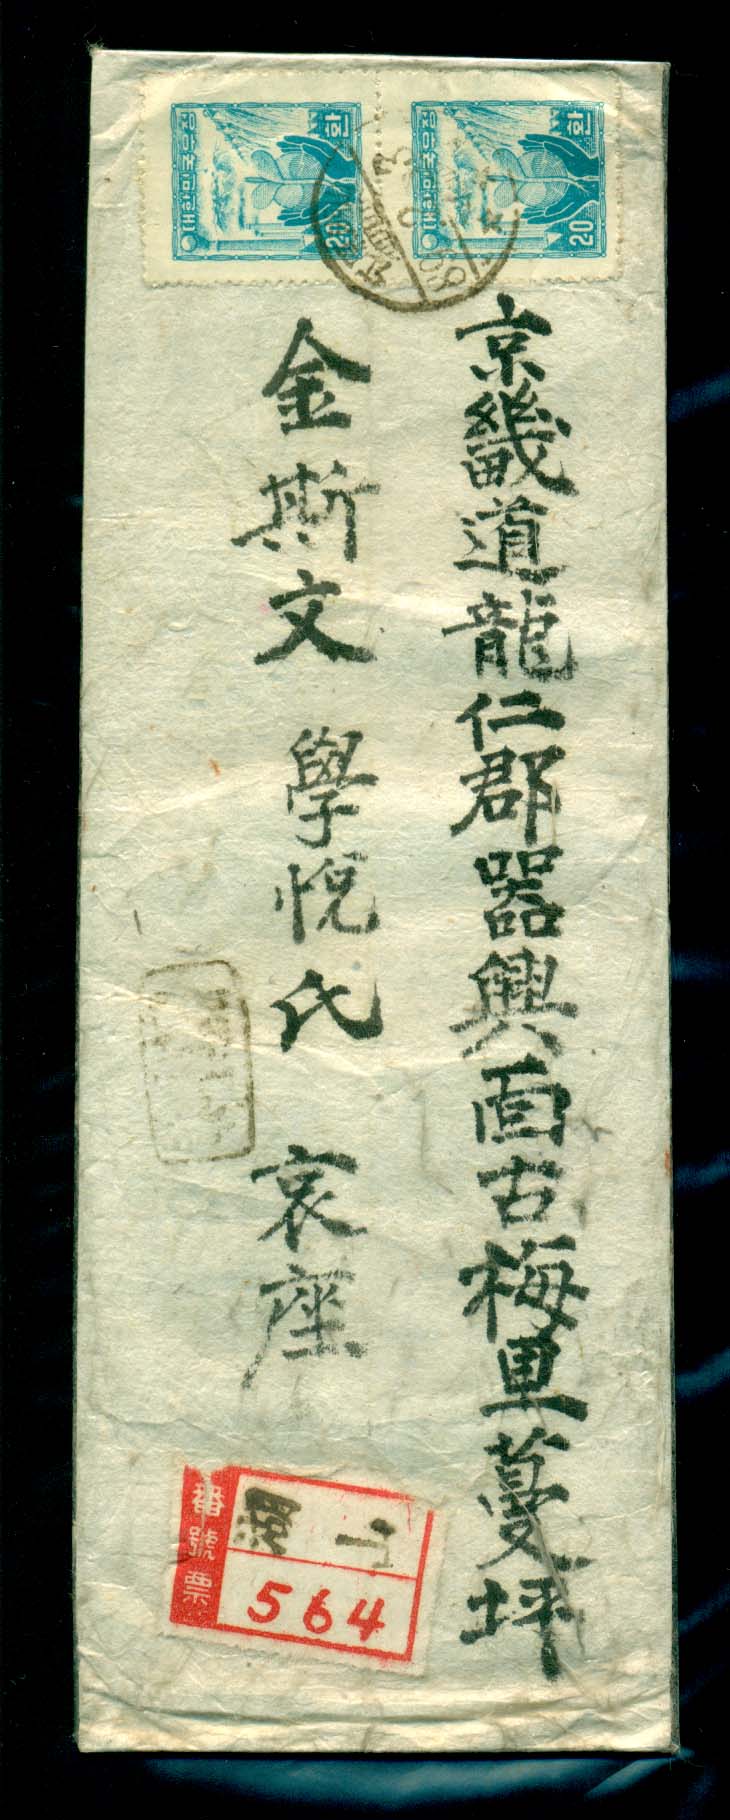 대한민국우정
20
환
대한민국우정
20
환
京畿道龍仁郡器興面古梅里蔓坪
金斯文 學悅氏 哀座
番號票
564